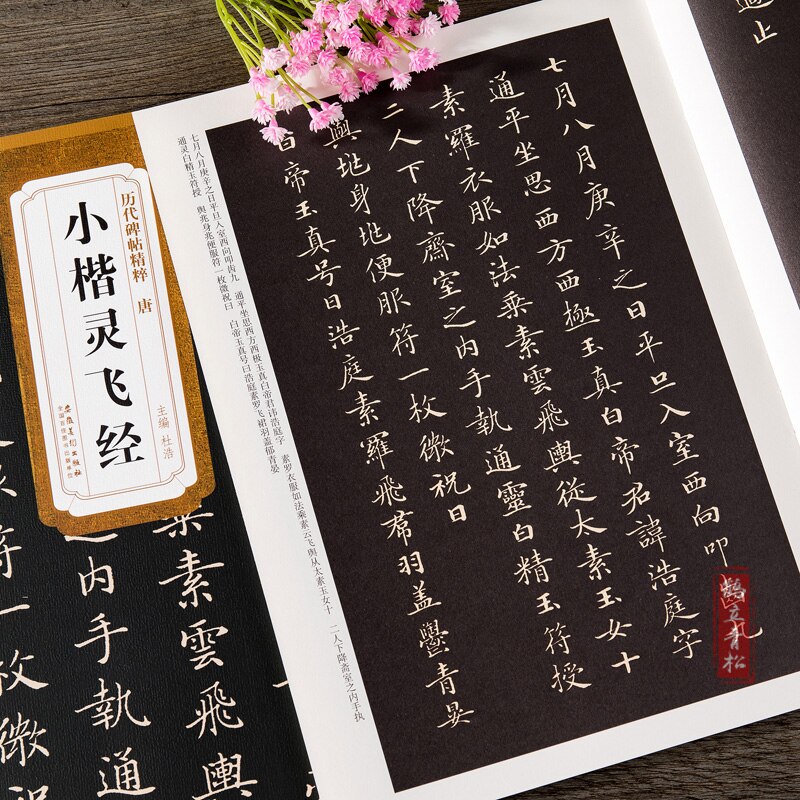 历代碑帖精粹 唐
小楷灵飞经
主编 杜浩
安徽美術出版社
全国百佳图书出版单位
乘素雲飛輿
之内手執通
符一枚微
止
七月八月庚辛之日平旦入室西向叩九
通平坐思西方西極玉真白帝君諱浩庭字
素羅衣服如法乘素雲飛輿從太素玉女十
二人下降齋室之内手執通靈白精玉符授
與兆身兆便服符一枚微祝曰
白帝玉真号曰浩庭素羅飛帬羽盖鬱青晏
七月八月庚辛之日平旦入室西向叩齿九 通平坐思西方西极玉真白帝君讳浩庭字 素罗衣服如法乘素云飞舆从太素玉女十 二人下降斋室之内手执
通灵白精玉符授 與兆身兆便服符一枚微祝曰 白帝玉真号曰浩庭素罗飞裙羽盖郁青晏
立青松